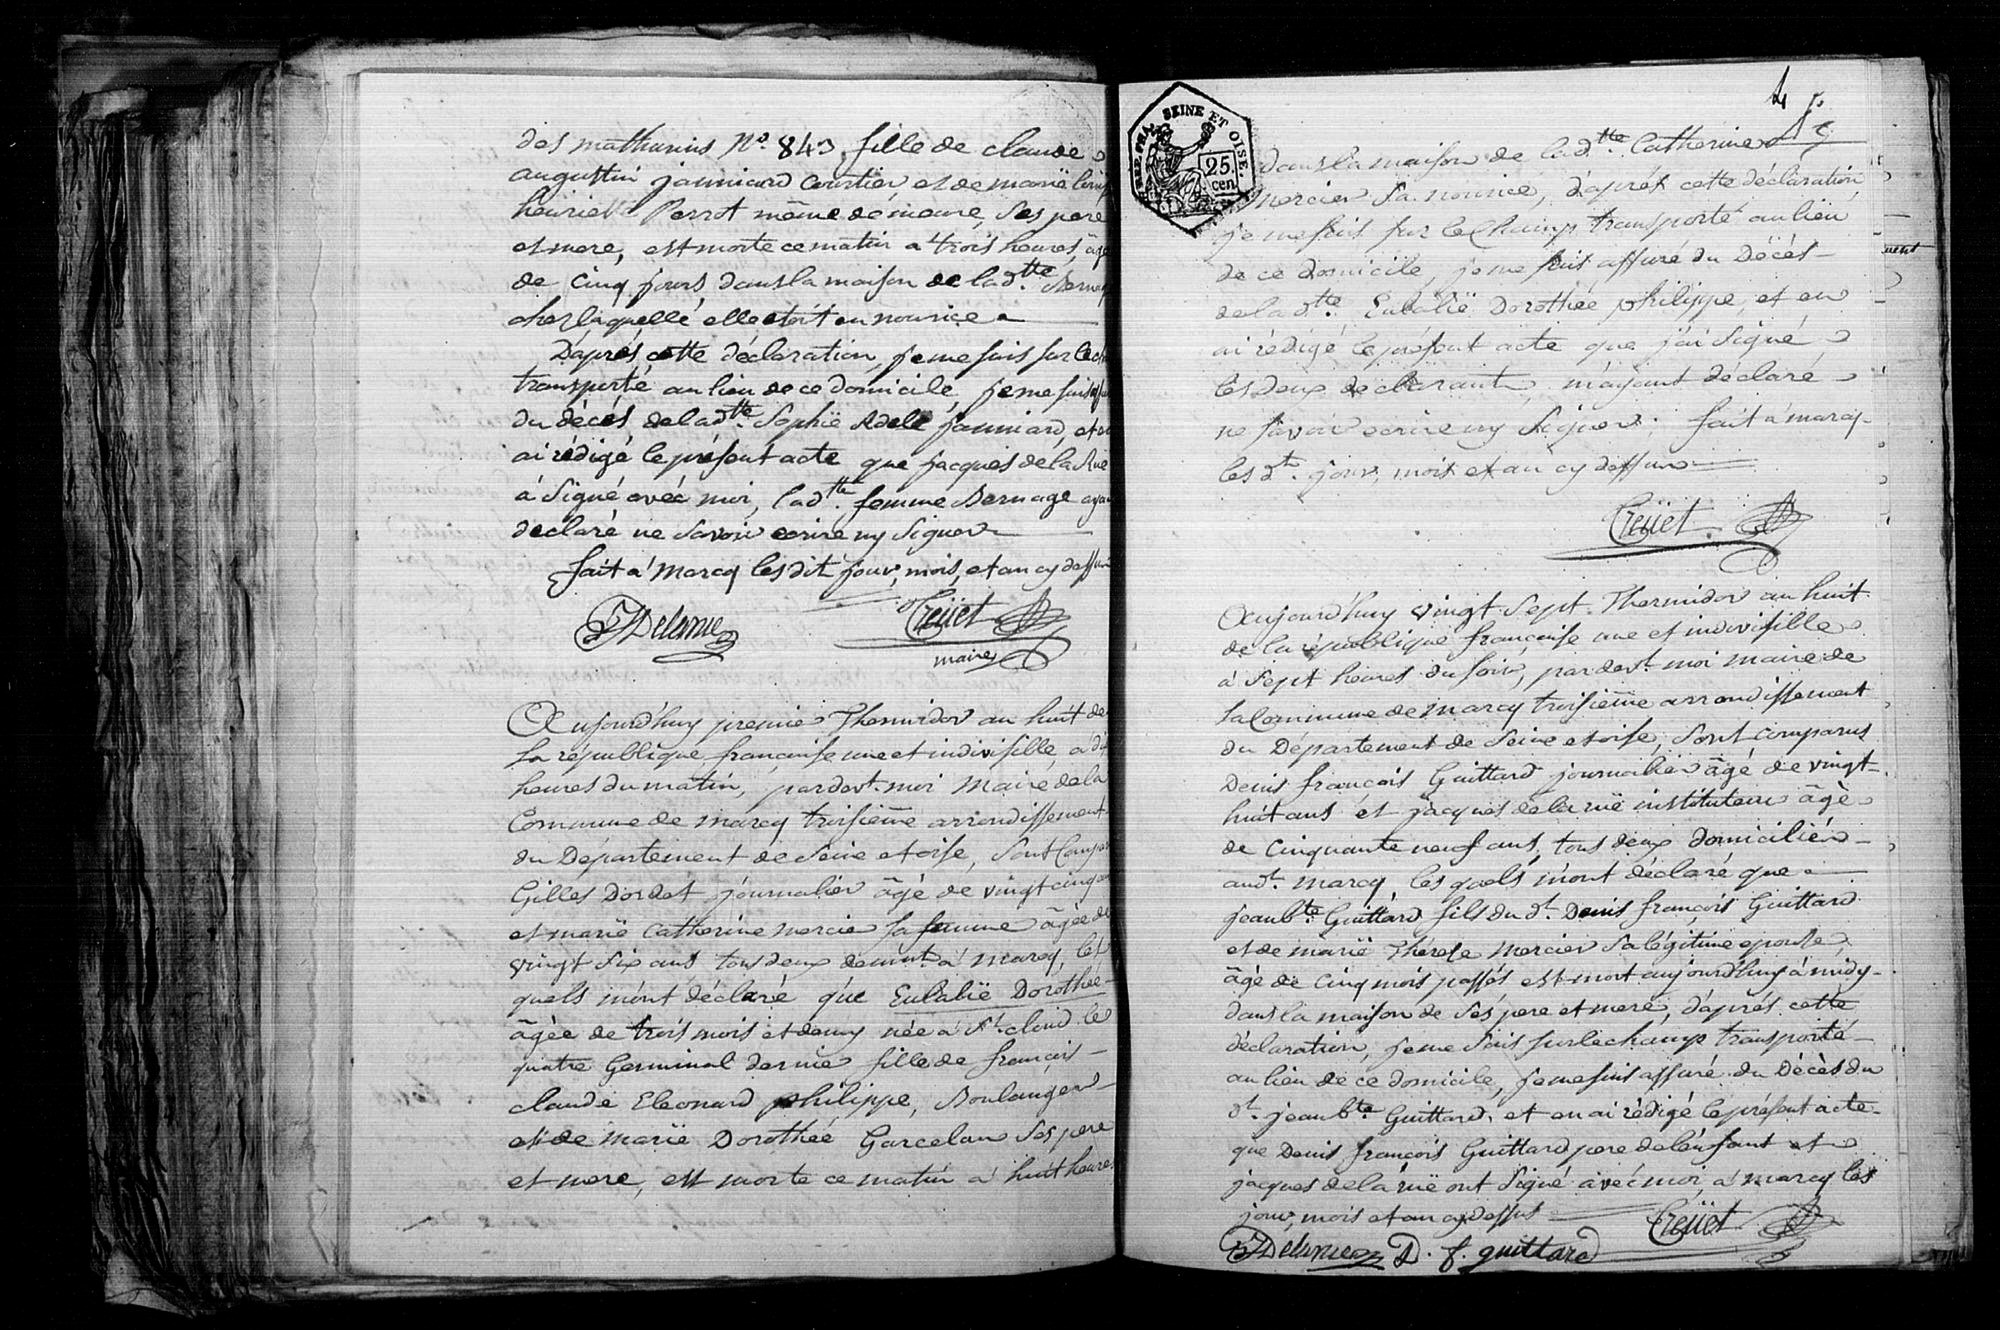 des mathurins N.º 843, fille de claude
augustin janniard courtier et de marië louis
henriette Perrot même demeure, ses pere
et mere, est morte ce matin a trois heures, âgé
de cinq jours dans la maison de lad.tte Bernag
chez laquelle elle etoit en nourice
D'après cette déclaration, je me suis sur le ch
transporté au lieu de ce domicile, je me suis assu
du décés de lad.tte Sophië Adele janniard, et en
ai rédigé le présent acte que jacques de la Rue
á signé avéc moi, lad.tte femme Bernage aya
declaré ne savoir ecrire ny signer
fait a marcq les dit jour, mois, et an cy dessus
JDelarue Creüet
maire
Aujourd'huy premier Thermidor an huit de
la république française une et indivisible, a di
heures du matin, pardevt. moi Maire de la
Commune de marcq troisieme arrondissement
du Département de Seine et oise, sont Compar
Gilles Dordet journalier âgé de vingt cinq an
et marië Catherine mercier sa femme âgée de
vingt six ans tous deux demt. a marcq, les
quels m'ont déclaré que Eulalië Dorothée
âgée de trois mois et demy née a St. cloud le
quatre Germinal dernier fille de françois
claude Eleonard philippe, Boulanger
et de Marië Dorothée Garcelan ses pere
et mere, est morte ce matin a huit heures
4
REP. FRA. SEINE ET OISE.
25
cen.
dans la maison de lad.tte Catherine
mercier sa nourice, d'aprés cette déclaration
je me suis sur le Champ transporté au lieu
de ce domicile, je me suis assuré du Décés
de la d.tte Eulalië Dorothée philippe, et en
ai rédigé le présent acte que j'ai signé
les deux declarants m'ayant déclaré
ne savoir ecrire ny signer; fait a marcq
les dt. jour, mois et an cy dessus
Creüet
Aujourd'huy vingt sept Thermidor an huit
de la république française une et indivisible
á sept heures du soir, pardevt. moi maire de
la Commune de marcq troisieme arrondissement
du Département de Seine et oise, sont comparus
Denis françois Guittard journalier âgé de vingt
huit ans et jacques de la ruë instituteur âgé
de cinquante neuf ans, tous deux domiciliés
aud.t marcq, les quels m'ont déclaré que
jean bte. Guittard fils du dt. Denis françois Guittard
et de marië Thérese Mercier sa légitime epouse,
âgé de cinq mois passés est mort aujourd'huy á midy
dans la maison de ses pere et mere, d'aprés cette
déclaration, je me suis sur le champ transporté
au lieu de ce domicile, je me suis assuré du Décès du
dt. jean bte. Guittard, et en ai rédigé le présent acte
que Denis françois Guittard pere de l'enfant et
jacques de la ruë ont signé avéc moi, a marcq les
jour, mois et an cy dessus Creüet
JDelarue D. f. guittard